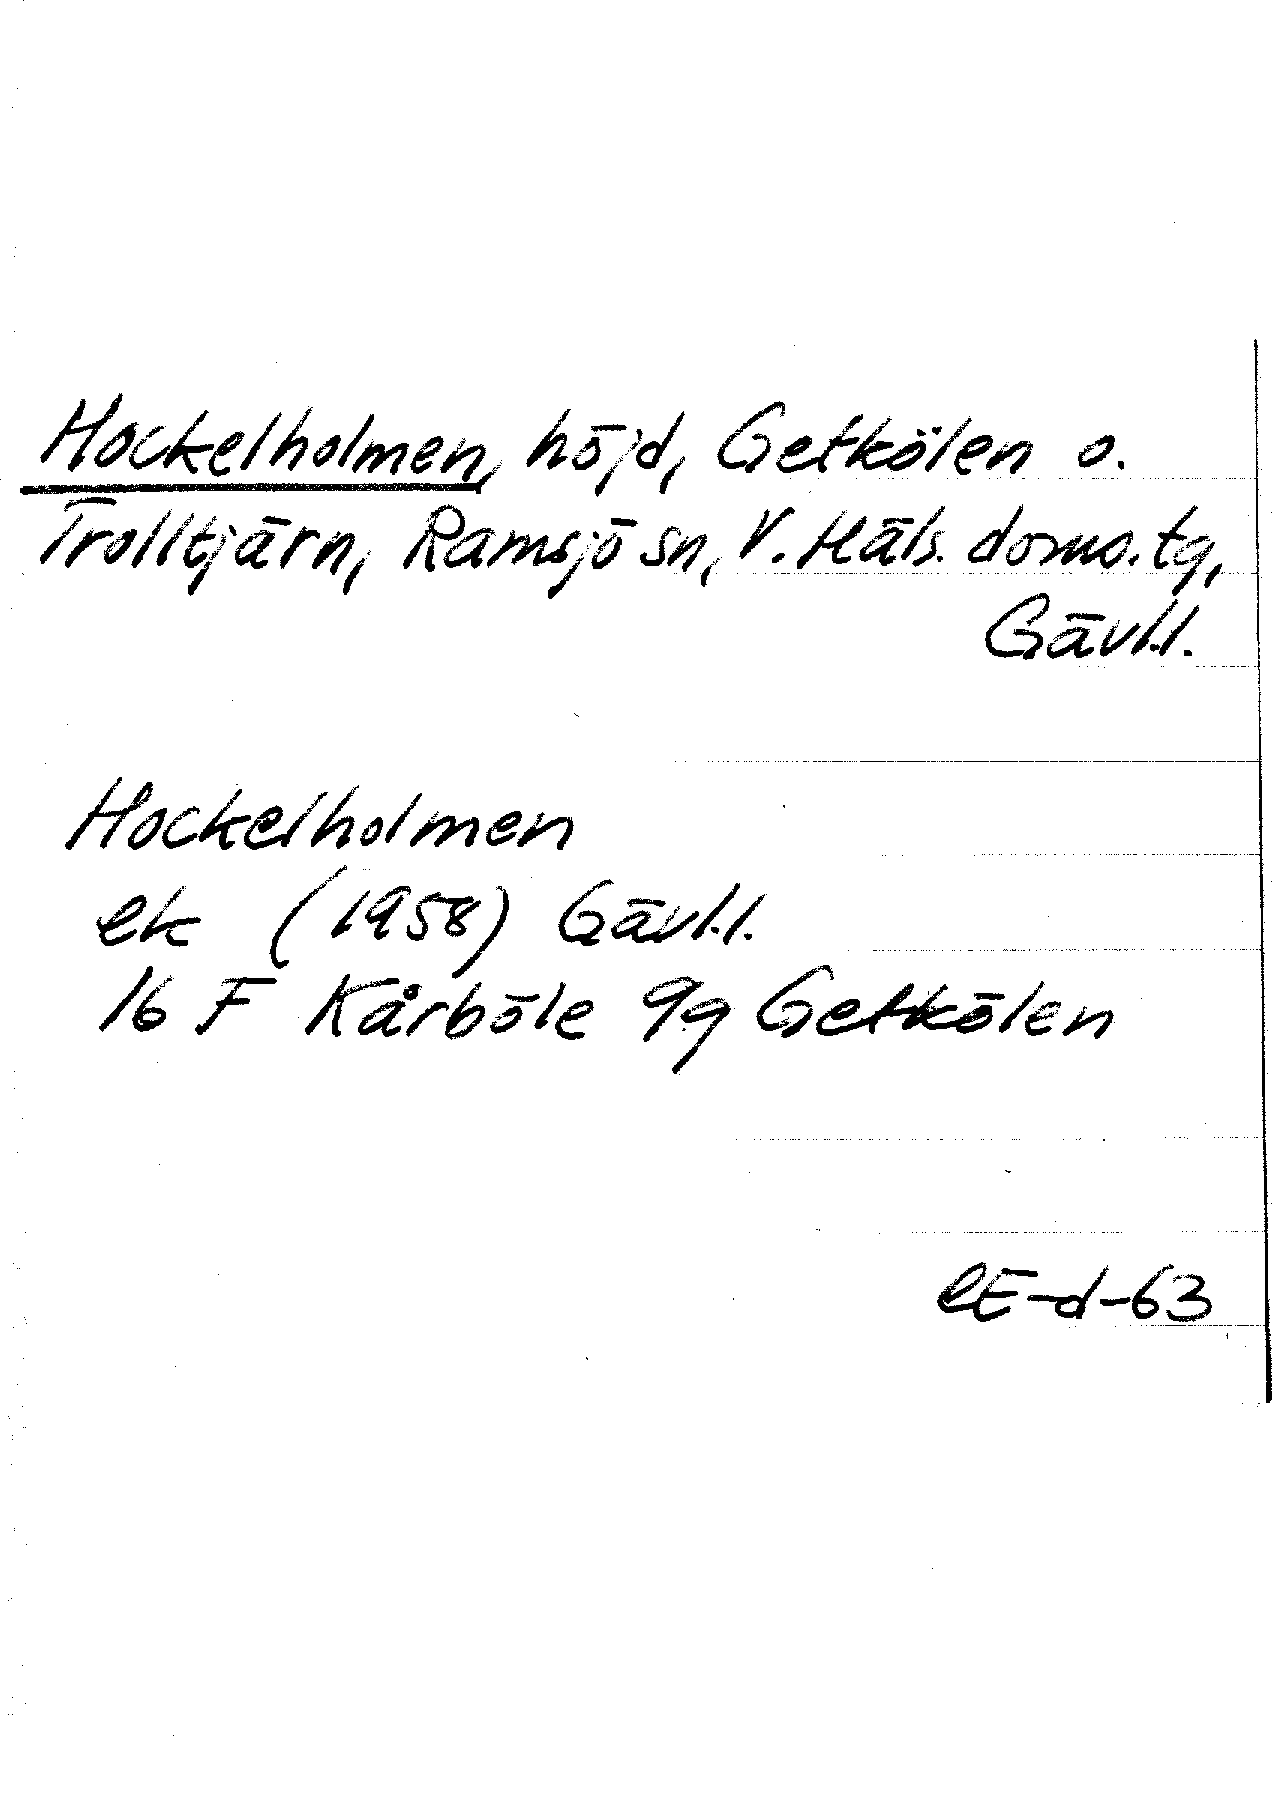 Hockelholmen, höjd, Getkölen o.
Trolltjärn, Ramsjö sn, V. Häls. doms. tg,
Gävl.l.
Hockelholmen
ek (1958) Gävl.l.
16 F Kårböle 9g Getkölen
eE-d-63